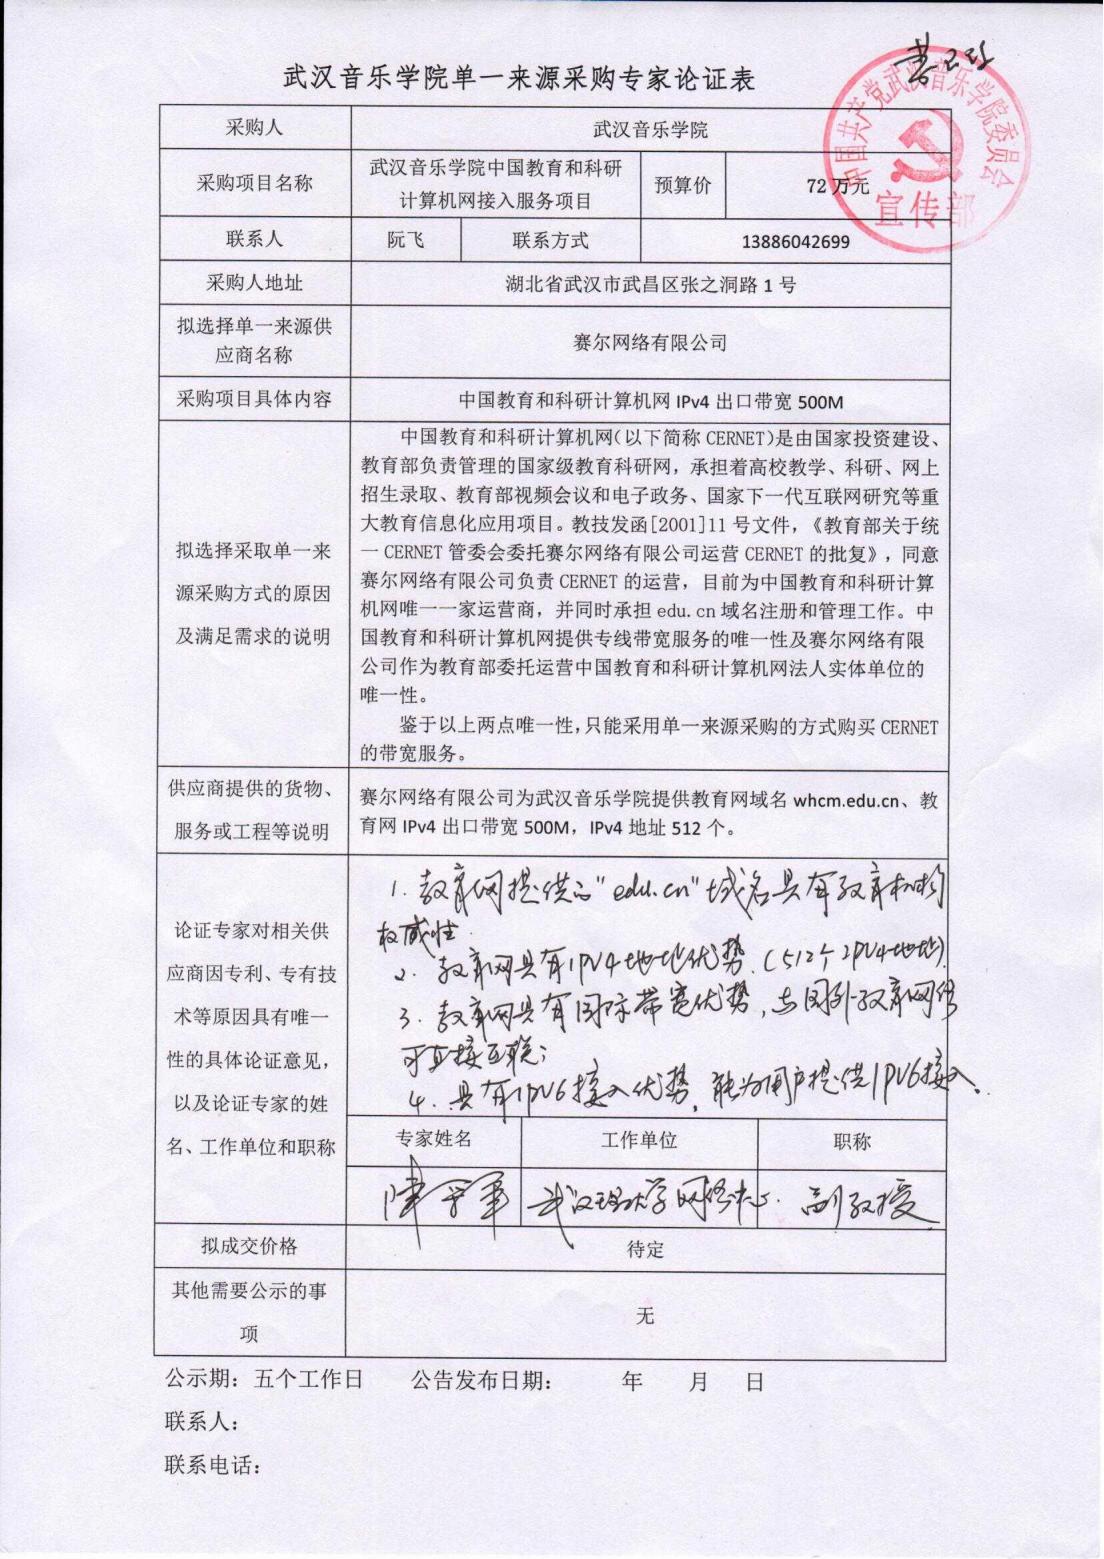 武汉音乐学院单一来源采购专家论证表
中国共产党武汉音乐学院委员会
宣传部
采购人
武汉音乐学院
采购项目名称
武汉音乐学院中国教育和科研
计算机网接入服务项目
预算价
72 万元
联系人
阮飞
联系方式
13886042699
采购人地址
湖北省武汉市武昌区张之洞路 1 号
拟选择单一来源供
应商名称
赛尔网络有限公司
采购项目具体内容
中国教育和科研计算机网 IPv4 出口带宽 500M
拟选择采取单一来
源采购方式的原因
及满足需求的说明
中国教育和科研计算机网(以下简称 CERNET)是由国家投资建设、
教育部负责管理的国家级教育科研网，承担着高校教学、科研、网上
招生录取、教育部视频会议和电子政务、国家下一代互联网研究等重
大教育信息化应用项目。教技发函[2001]11 号文件，《教育部关于统
一 CERNET 管委会委托赛尔网络有限公司运营 CERNET 的批复》，同意
赛尔网络有限公司负责 CERNET 的运营，目前为中国教育和科研计算
机网唯一一家运营商，并同时承担 edu.cn 域名注册和管理工作。中
国教育和科研计算机网提供专线带宽服务的唯一性及赛尔网络有限
公司作为教育部委托运营中国教育和科研计算机网法人实体单位的
唯一性。
鉴于以上两点唯一性，只能采用单一来源采购的方式购买 CERNET
的带宽服务。
供应商提供的货物、
服务或工程等说明
赛尔网络有限公司为武汉音乐学院提供教育网域名 whcm.edu.cn、教
育网 IPv4 出口带宽 500M，IPv4 地址 512 个。
论证专家对相关供
应商因专利、专有技
术等原因具有唯一
性的具体论证意见，
以及论证专家的姓
名、工作单位和职称
1. 教育网提供的"edu.cn"域名具有教育机构
权威性.
2. 教育网具有IPV4地址优势.(512个IPV4地址)
3. 教育网具有国际带宽优势,与国外教育网络
可直接互联;
4. 具有IPV6接入优势,能为用户提供IPV6接入.
专家姓名
工作单位
职称
武汉理工大学网络中心
副教授
拟成交价格
待定
其他需要公示的事
项
无
公示期：五个工作日 公告发布日期： 年 月 日
联系人：
联系电话：